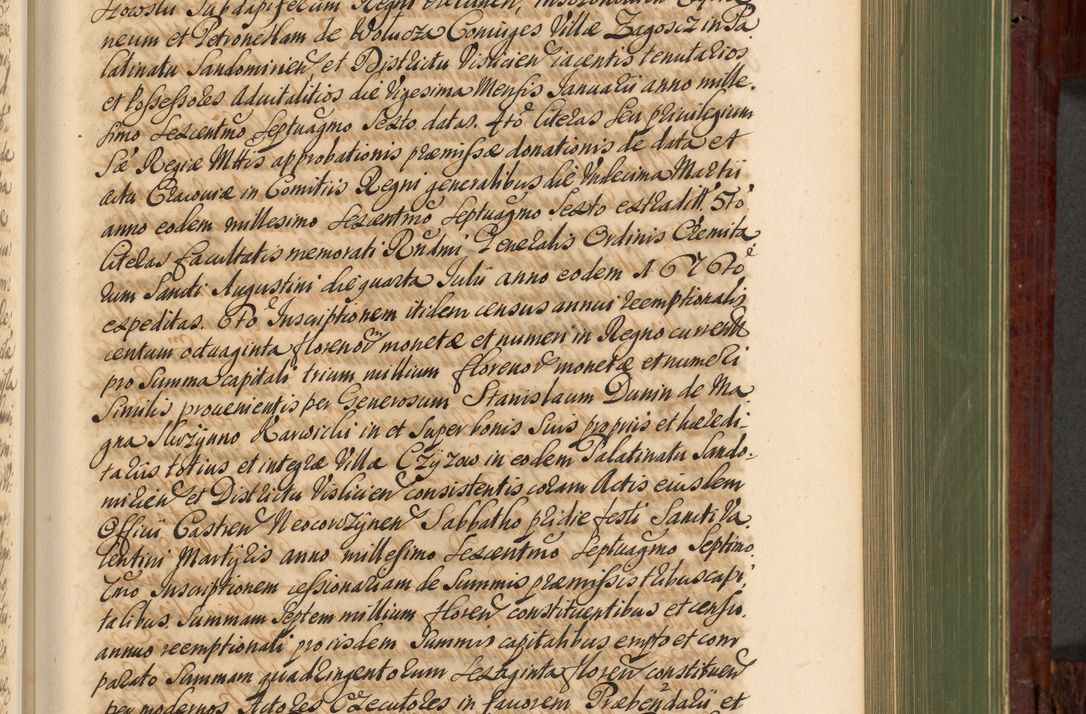 neum et Petronellam de Wolucza Coniuges Villæ Zagoscz in Pa
latinatu Sandomirien et Districtu Vislicien iacentis tenutarios
et Possessores Advitalitios die Vigesima Mensis Januarii anno mille.
simo sexcentmo septuagmo sexto datas. 4to literas seu privilegium
Sæ Regiæ Mttis approbationis præmissæ donationis de data et
actu Cracoviæ in Comitiis Regni generalibus die Undecima Martii
anno eodem millesimo sexcentmo septuagmo sexto extradit 5to
literas facultatis memorati Rndmi Generalis Ordinis Eremita
rum Sancti Augustini die quarta Julii anno eodem 1676to
expeditas. 6to Inscriptionem itidem census annui reemptionalis
centum octuaginta florenor monetæ et numeri in Regno curren
pro summa capitali trium millium florenor monetæ et numeri
similis provenientis per Generosum Stanislaum Dunin de Ma
gna Skrzynno Karwicki in et super bonis suis propriis et hæredi
tariis totius et integræ Villæ Czyzow in eodem Palatinatu Sando.
mirien et Districtu Vislicien consistentis coram Actis eiusdem
Officii Castren Neocorczynen Sabbatho pridie festi Sancti Va
lentini Martyris anno millesimo sexcentmo septuagmo septimo.
7mo Inscriptionem cessionariam de summis præmissis tribus capi
talibus summam septem millium floren constituentibus et censu
annuo reemptionali pro iisdem summis capitalibus empto et com
parato summam quadringentorum sexaginta floren constituen
per modernos Actores Executores in favorem Præbendarii et